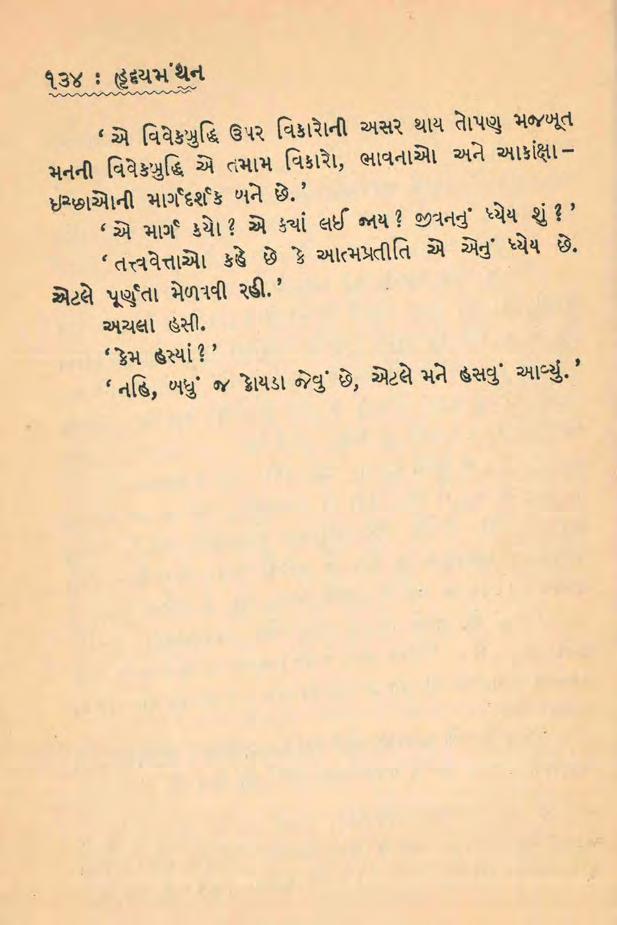 ૧૩૪ : હૃદયમંથન
‘ એ વિવેકબુદ્ધિ ઉપર વિકારોની અસર થાય તોપણ મજબૂત
મનની વિવેકબુદ્ધિ એ તમામ વિકારો, ભાવનાઓ અને આકાંક્ષા –
ઇચ્છાઓની માર્ગદર્શક બને છે. ’
‘ એ માર્ગ કયો ? એ ક્યાં લઈ જાય ? જીવનનું ધ્યેય શું ? ’
‘ તત્ત્વવેત્તાઓ કહે છે કે આત્મપ્રતીતિ એ એનું ધ્યેય છે.
એટલે પૂર્ણતા મેળવવી રહી. ’
અચલા હસી.
‘ કેમ હસ્યાં ? ’
‘ નહિ, બધું જ કોયડા જેવું છે, એટલે મને હસવું આવ્યું. ’